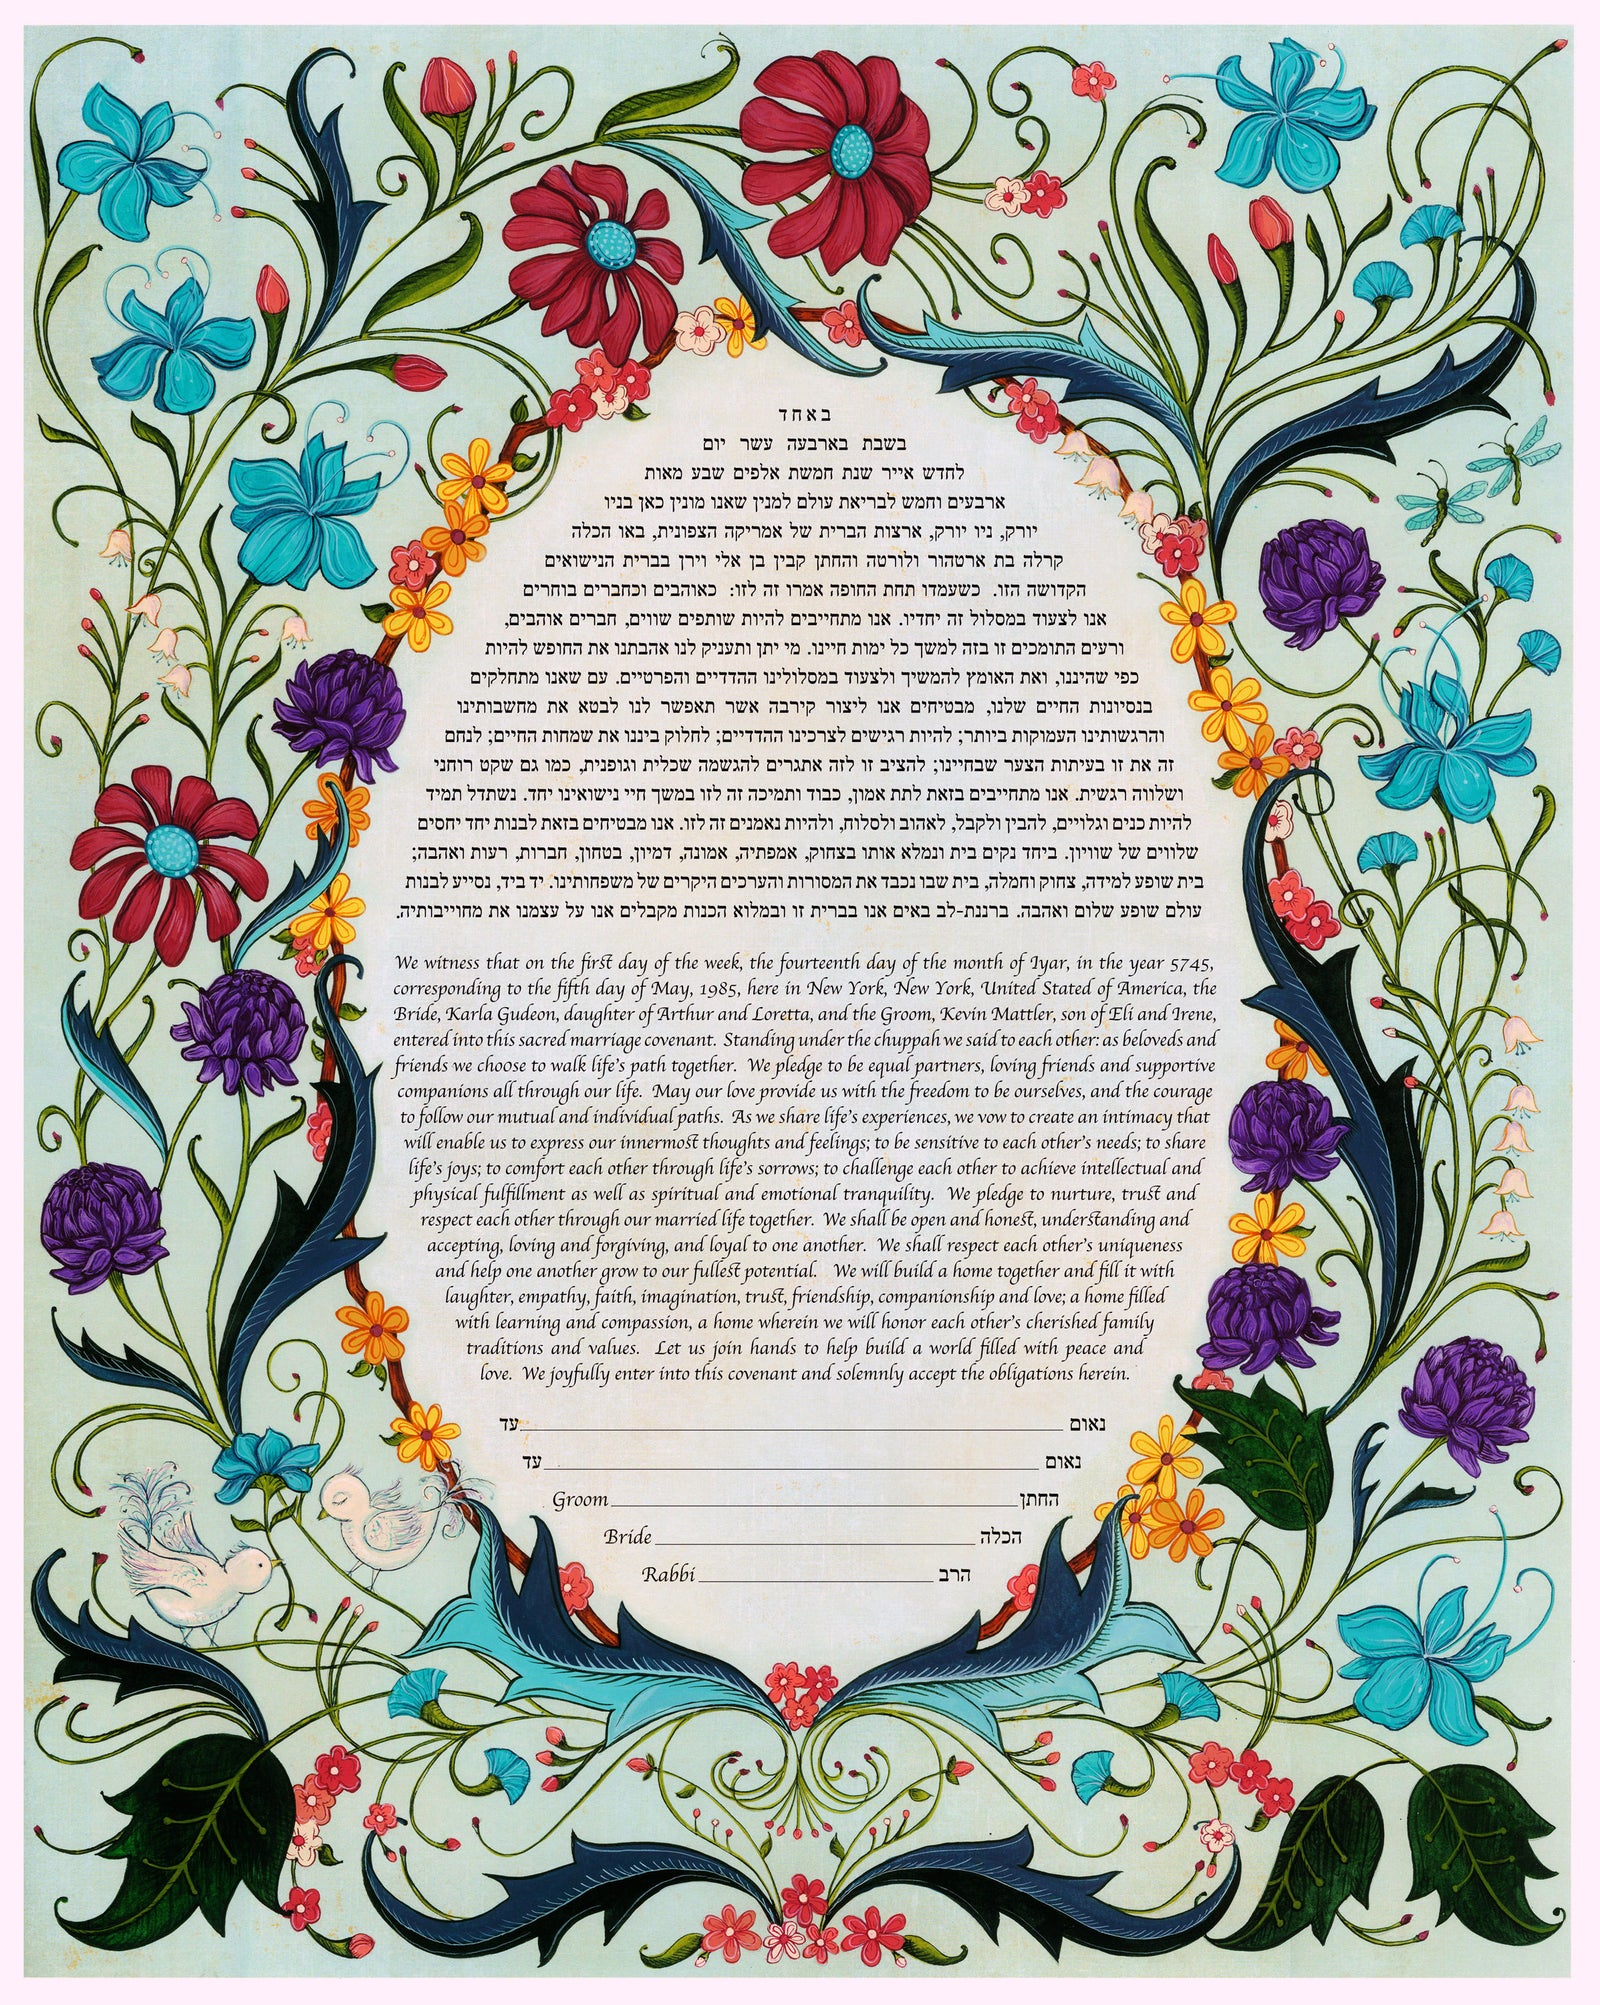 באחד
בשבת בארבעה עשר יום
לחדש אייר שנת חמשת אלפים שבע מאות
ארבעים וחמש לבריאת עולם למנין שאנו מונין כאן בניו
יורק, ניו יורק, ארצות הברית של אמריקה הצפונית, באו הכלה
קרלה בת ארטהור ולורטה והחתן קבין בן אלי וירן בברית הנישואים
הקדושה הזו. כשעמדו תחת החופה אמרו זה לזו: כאוהבים וכחברים בוחרים
אנו לצעוד במסלול זה יחדיו. אנו מתחייבים להיות שותפים שווים, חברים אוהבים,
ורעים התומכים זו בזה למשך כל ימות חיינו. מי יתן ותעניק לנו אהבתנו את החופש להיות
כפי שהיננו, ואת האומץ להמשיך ולצעוד במסלולינו ההדדיים והפרטיים. עם שאנו מתחלקים
בנסיונות החיים שלנו, מבטיחים אנו ליצור קירבה אשר תאפשר לנו לבטא את מחשבותינו
והרגשותינו העמוקות ביותר; להיות רגישים לצרכינו ההדדיים; לחלוק ביננו את שמחות החיים; לנחם
זה את זו בעיתות הצער שבחיינו; להציב זו לזה אתגרים להגשמה שכלית וגופנית, כמו גם שקט רוחני
ושלווה רגשית. אנו מתחייבים בזאת לתת אמון, כבוד ותמיכה זה לזו במשך חיי נישואינו יחד. נשתדל תמיד
להיות כנים וגלויים, להבין ולקבל, לאהוב ולסלוח, ולהיות נאמנים זה לזו. אנו מבטיחים בזאת לבנות יחד יחסים
שלווים של שוויון. ביחד נקים בית ונמלא אותו בצחוק, אמפתיה, אמונה, דמיון, בטחון, חברות, רעות ואהבה;
בית שופע למידה, צחוק וחמלה, בית שבו נכבד את המסורות והערכים היקרים של משפחותינו. יד ביד, נסייע לבנות
עולם שופע שלום ואהבה. ברננת-לב באים אנו בברית זו ובמלוא הכנות מקבלים אנו על עצמנו את מחוייבותיה.
We witness that on the first day of the week, the fourteenth day of the month of Iyar, in the year 5745,
corresponding to the fifth day of May, 1985, here in New York, New York, United Stated of America, the
Bride, Karla Gudeon, daughter of Arthur and Loretta, and the Groom, Kevin Mattler, son of Eli and Irene,
entered into this sacred marriage covenant. Standing under the chuppah we said to each other: as beloveds and
friends we choose to walk life's path together. We pledge to be equal partners, loving friends and supportive
companions all through our life. May our love provide us with the freedom to be ourselves, and the courage
to follow our mutual and individual paths. As we share life's experiences, we vow to create an intimacy that
will enable us to express our innermost thoughts and feelings; to be sensitive to each other's needs; to share
life's joys; to comfort each other through life's sorrows; to challenge each other to achieve intellectual and
physical fulfillment as well as spiritual and emotional tranquility. We pledge to nurture, trust and
respect each other through our married life together. We shall be open and honest, understanding and
accepting, loving and forgiving, and loyal to one another. We shall respect each other's uniqueness
and help one another grow to our fullest potential. We will build a home together and fill it with
laughter, empathy, faith, imagination, trust, friendship, companionship and love; a home filled
with learning and compassion, a home wherein we will honor each other's cherished family
traditions and values. Let us join hands to help build a world filled with peace and
love. We joyfully enter into this covenant and solemnly accept the obligations herein.
נאום עד
נאום עד
Groom החתן
Bride הכלה
Rabbi הרב